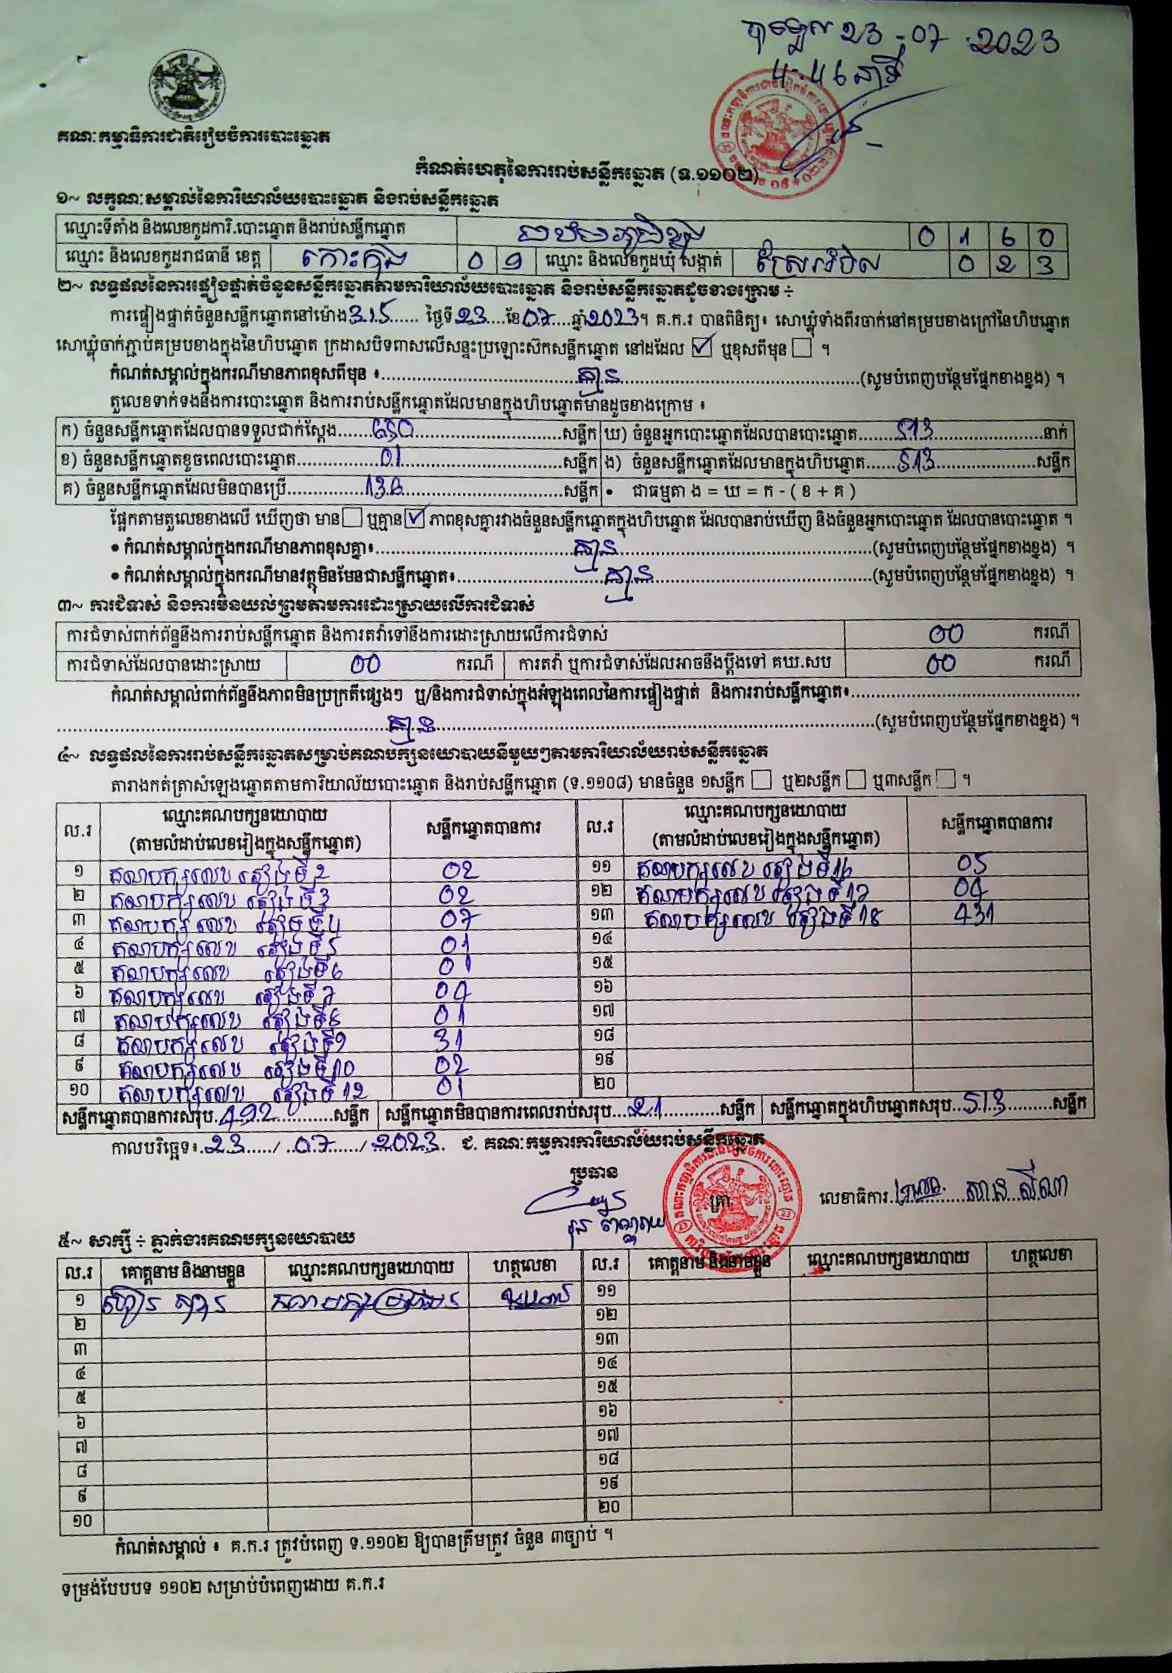 បានទទួល 23-07-2023
4-46 នាទី
គណៈកម្មាធិការជាតិរៀបចំការបោះឆ្នោត
កំណត់ហេតុនៃការរាប់សន្លឹកឆ្នោត (ទ.១១០២)
១~ លក្ខណៈសម្គាល់នៃការិយាល័យបោះឆ្នោត និងរាប់សន្លឹកឆ្នោត
ឈ្មោះទីតាំង និងលេខកូដការិ.បោះឆ្នោត និងរាប់សន្លឹកឆ្នោត 0 1 6 0
ឈ្មោះ និងលេខកូដរាជធានី ខេត្ត កោះកុង 0 9 ឈ្មោះ និងលេខកូដឃុំ សង្កាត់ ស្រែអំបិល 0 2 3
២~ លទ្ធផលនៃការផ្ទៀងផ្ទាត់ចំនួនសន្លឹកឆ្នោតតាមការិយាល័យបោះឆ្នោត និងរាប់សន្លឹកឆ្នោតដូចខាងក្រោម ÷
ការផ្ទៀងផ្ទាត់ចំនួនសន្លឹកឆ្នោតនៅម៉ោង 3.15 ថ្ងៃទី 23 ខែ 07 ឆ្នាំ 2023។ គ.ក.រ បានពិនិត្យ៖ សោឃ្លុំទាំងពីរចាក់នៅគម្របខាងក្រៅនៃហិបឆ្នោត
សោឃ្លុំចាក់ភ្ជាប់គម្របខាងក្នុងនៃហិបឆ្នោត ក្រដាសបិទពាសលើសន្ទះប្រឡោះស៊កសន្លឹកឆ្នោត នៅដដែល ☑ ឬខុសពីមុន ☐ ។
កំណត់សម្គាល់ក្នុងករណីមានភាពខុសពីមុន ៖ គ្មាន (សូមបំពេញបន្ថែមផ្នែកខាងខ្នង) ។
តួលេខទាក់ទងនឹងការបោះឆ្នោត និងការរាប់សន្លឹកឆ្នោតដែលមានក្នុងហិបឆ្នោតមានដូចខាងក្រោម ៖
ក) ចំនួនសន្លឹកឆ្នោតដែលបានទទួលជាក់ស្តែង 650 សន្លឹក ឃ) ចំនួនអ្នកបោះឆ្នោតដែលបានបោះឆ្នោត 513 នាក់
ខ) ចំនួនសន្លឹកឆ្នោតខូចពេលបោះឆ្នោត 01 សន្លឹក ង) ចំនួនសន្លឹកឆ្នោតដែលមានក្នុងហិបឆ្នោត 513 សន្លឹក
គ) ចំនួនសន្លឹកឆ្នោតដែលមិនបានប្រើ 136 សន្លឹក • ជាធម្មតា ង = ឃ = ក - ( ខ + គ )
ផ្អែកតាមតួលេខខាងលើ ឃើញថា មាន ☐ ឬគ្មាន ☑ ភាពខុសគ្នារវាងចំនួនសន្លឹកឆ្នោតក្នុងហិបឆ្នោត ដែលបានរាប់ឃើញ និងចំនួនអ្នកបោះឆ្នោត ដែលបានបោះឆ្នោត ។
• កំណត់សម្គាល់ក្នុងករណីមានភាពខុសគ្នា៖ គ្មាន (សូមបំពេញបន្ថែមផ្នែកខាងខ្នង) ។
• កំណត់សម្គាល់ក្នុងករណីមានវត្ថុមិនមែនជាសន្លឹកឆ្នោត៖ គ្មាន (សូមបំពេញបន្ថែមផ្នែកខាងខ្នង) ។
៣~ ការជំទាស់ និងការមិនយល់ព្រមតាមការដោះស្រាយលើការជំទាស់
ការជំទាស់ពាក់ព័ន្ធនឹងការរាប់សន្លឹកឆ្នោត និងការតវ៉ាទៅនឹងការដោះស្រាយលើការជំទាស់ 00 ករណី
ការជំទាស់ដែលបានដោះស្រាយ 00 ករណី ការតវ៉ា ឬការជំទាស់ដែលអាចនឹងប្តឹងទៅ គឃ.សប 00 ករណី
កំណត់សម្គាល់ពាក់ព័ន្ធនឹងភាពមិនប្រក្រតីផ្សេងៗ ឬ/និងការជំទាស់ក្នុងអំឡុងពេលនៃការផ្ទៀងផ្ទាត់ និងការរាប់សន្លឹកឆ្នោត៖
គ្មាន (សូមបំពេញបន្ថែមផ្នែកខាងខ្នង) ។
៤~ លទ្ធផលនៃការរាប់សន្លឹកឆ្នោតសម្រាប់គណបក្សនយោបាយនីមួយៗតាមការិយាល័យរាប់សន្លឹកឆ្នោត
តារាងកត់ត្រាសំឡេងឆ្នោតតាមការិយាល័យបោះឆ្នោត និងរាប់សន្លឹកឆ្នោត (ទ.១១០៨) មានចំនួន ១សន្លឹក ☐ ឬ២សន្លឹក ☐ ឬ៣សន្លឹក ☐ ។
ល.រ ឈ្មោះគណបក្សនយោបាយ (តាមលំដាប់លេខរៀងក្នុងសន្លឹកឆ្នោត) សន្លឹកឆ្នោតបានការ ល.រ ឈ្មោះគណបក្សនយោបាយ (តាមលំដាប់លេខរៀងក្នុងសន្លឹកឆ្នោត) សន្លឹកឆ្នោតបានការ
១ គណបក្សលេខរៀងទី2 02 ១១ គណបក្សលេខរៀងទី16 05
២ គណបក្សលេខរៀងទី3 02 ១២ គណបក្សលេខរៀងទី17 04
៣ គណបក្សលេខរៀងទី4 07 ១៣ គណបក្សលេខរៀងទី18 431
៤ គណបក្សលេខរៀងទី5 01 ១៤
៥ គណបក្សលេខរៀងទី6 01 ១៥
៦ គណបក្សលេខរៀងទី7 04 ១៦
៧ គណបក្សលេខរៀងទី8 01 ១៧
៨ គណបក្សលេខរៀងទី9 31 ១៨
៩ គណបក្សលេខរៀងទី10 02 ១៩
១០ គណបក្សលេខរៀងទី12 01 ២០
សន្លឹកឆ្នោតបានការសរុប 492 សន្លឹក សន្លឹកឆ្នោតមិនបានការពេលរាប់សរុប 21 សន្លឹក សន្លឹកឆ្នោតក្នុងហិបឆ្នោតសរុប 513 សន្លឹក
កាលបរិច្ឆេទ៖ 23 / 07 / 2023. ជ. គណៈកម្មការការិយាល័យរាប់សន្លឹកឆ្នោត
ប្រធាន ត្រា លេខាធិការ សាន ស៊ីណា
៥~ សាក្សី ÷ ភ្នាក់ងារគណបក្សនយោបាយ
ល.រ គោត្តនាម និងនាមខ្លួន ឈ្មោះគណបក្សនយោបាយ ហត្ថលេខា ល.រ គោត្តនាម និងនាមខ្លួន ឈ្មោះគណបក្សនយោបាយ ហត្ថលេខា
១ ១១
២ ១២
៣ ១៣
៤ ១៤
៥ ១៥
៦ ១៦
៧ ១៧
៨ ១៨
៩ ១៩
១០ ២០
កំណត់សម្គាល់ ៖ គ.ក.រ ត្រូវបំពេញ ទ.១១០២ ឱ្យបានត្រឹមត្រូវ ចំនួន ៣ច្បាប់ ។
ទម្រង់បែបបទ ១១០២ សម្រាប់បំពេញដោយ គ.ក.រ